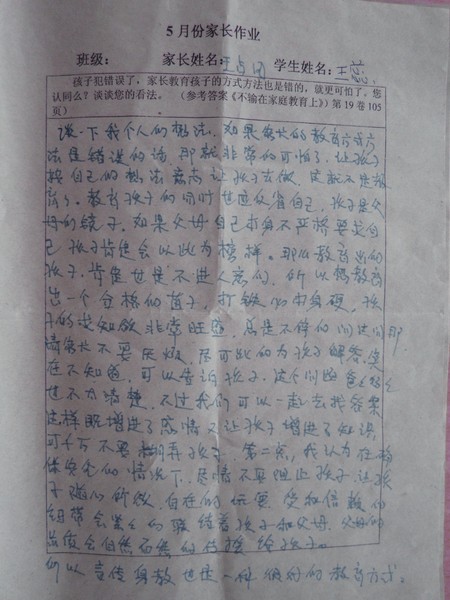 5月份家长作业
班级： 家长姓名：王占国 学生姓名：王蕊
孩子犯错误了，家长教育孩子的方式方法也是错的，就更可怕了，您
认同么？谈谈您的看法。（参考答案《不输在家庭教育上》）第19卷105
页）
谈一下我个人的想法。如果家长的教育方式方
法是错误的话，那就非常的可怕了。让孩子
按自己的想法意志让孩子去做，这就不是教
育了。教育孩子的同时也应反省自己，孩子是父
母的镜子。如果父母自己本身不严格要求自
己 孩子肯定会以此为榜样。那么教育出的
孩子，肯定也是不进人意的，所以想教育
出一个合格的苗子，打铁必须自身硬，孩
子的求知欲非常旺盛，总是不停的问这问那
请家长不要厌烦，尽可能的为孩子解答实
在不知道，可以告诉孩子，这个问题爸爸妈妈
也不太清楚，不过我们可以一起去找答案
这样既增进了感情又让孩子增进了知识，
可千万不要糊弄孩子，第二点，我认为在确
保安全的情况下，尽情不要阻止孩子，让孩
子随心所欲，自在的玩耍，爱和信赖的
纽带会紧紧的联结着孩子和父母，父母的
品质会自然而然的传播给孩子。
所以言传身教也是一件很好的教育方式。